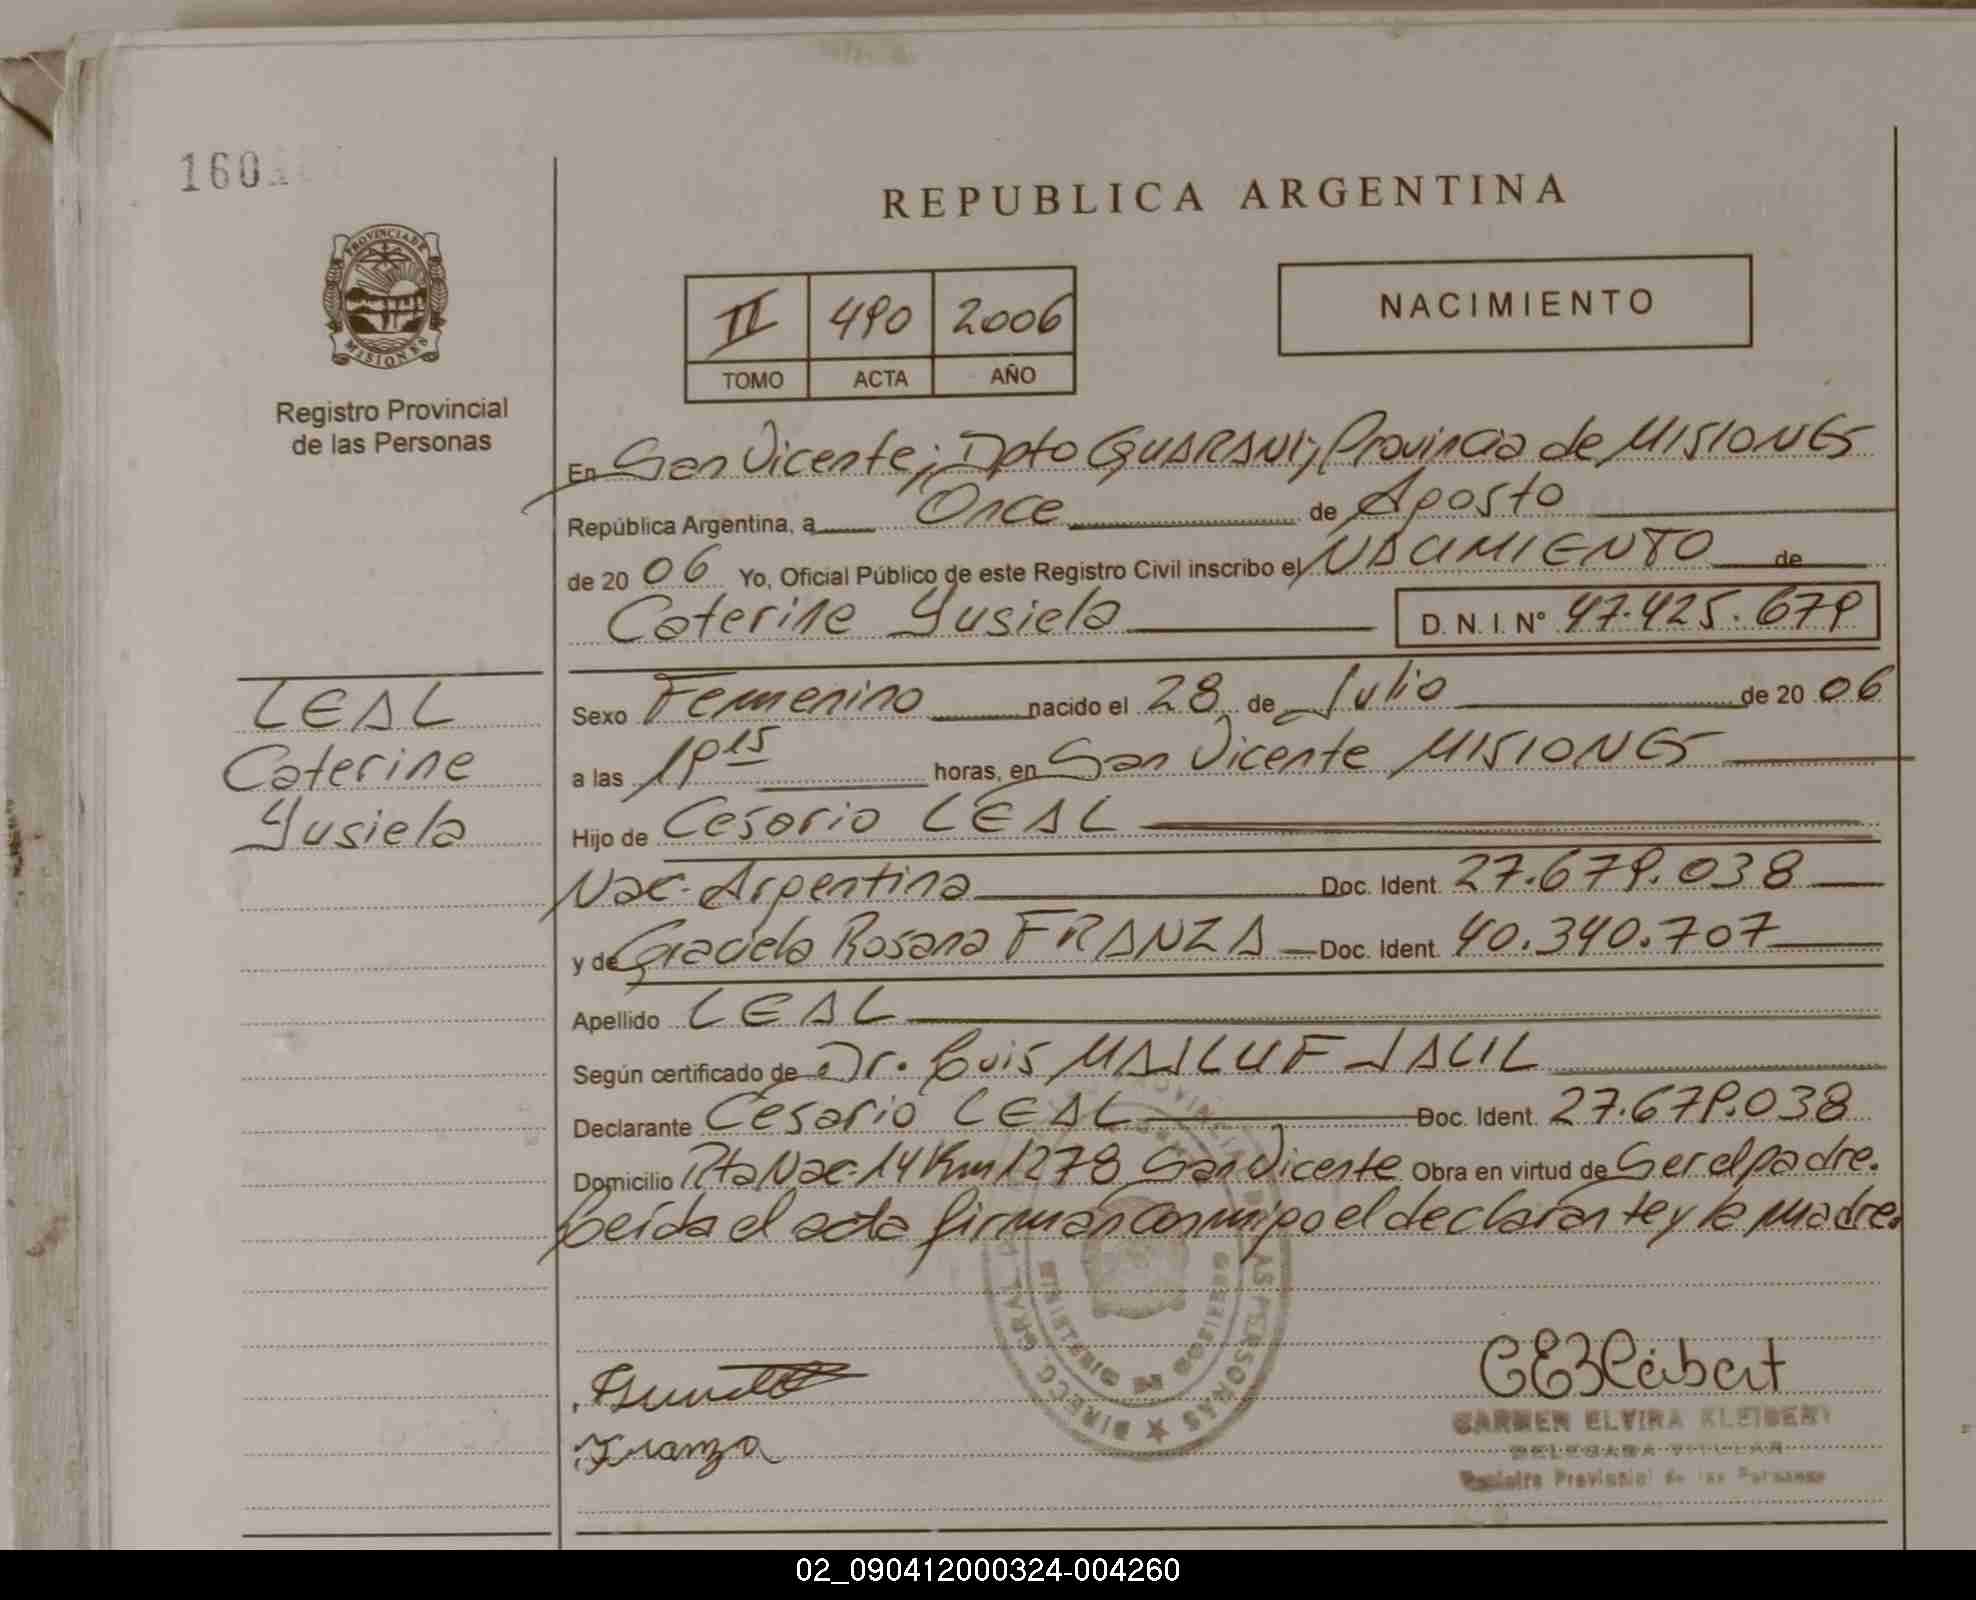 160
REPUBLICA ARGENTINA
PROVINCIA DE
MISIONES
Registro Provincial
de las Personas
II 490 2006
TOMO ACTA AÑO
NACIMIENTO
En San Vicente; Dpto GUARANI; Provincia de MISIONES
República Argentina, a Once de Agosto
de 2006 Yo, Oficial Público de este Registro Civil inscribo el NACIMIENTO de
Caterine Yusiela D. N. I. Nº 47.425.679
LEAL
Caterine
Yusiela
Sexo Femenino nacido el 28 de Julio de 2006
a las 19 15 horas, en San Vicente MISIONES
Hijo de Cesario LEAL
Nac. Argentina Doc. Ident. 27.679.038
y de Graciela Rosana FRANZA Doc. Ident. 40.340.707
Apellido LEAL
Según certificado de Dr. Luis MAILUF JALIL
Declarante Cesario LEAL Doc. Ident. 27.679.038
Domicilio Rta Nac. 14 Km 1278 San Vicente Obra en virtud de Ser el padre.
Leída el acta firman conmigo el declarante y la madre.
Franza
CEKleibert
CARMEN ELVIRA KLEIBERT
DELEGADA TITULAR
Registro Provincial de las Personas
02_090412000324-004260